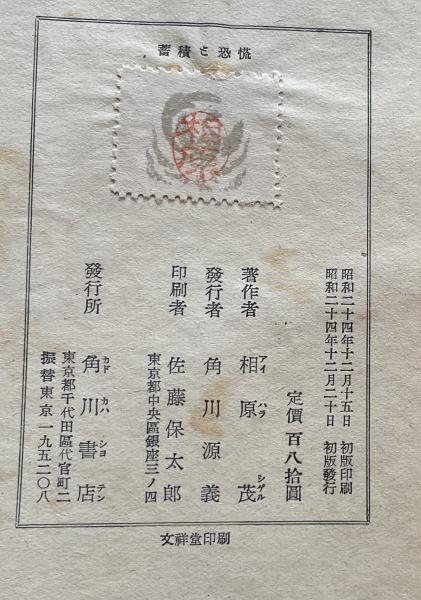 蓄積と恐慌
相原
昭和二十四年十二月十五日 初版印刷
昭和二十四年十二月二十日 初版發行
定價 百八拾圓
著作者 相原茂
アイ ハラ シゲル
發行者 角川源義
印刷者 佐藤保太郎
東京都中央區銀座三ノ四
發行所 角川書店
カド カハ シヨ テン
東京都千代田區代官町二
振替東京一九五二〇八
文祥堂印刷